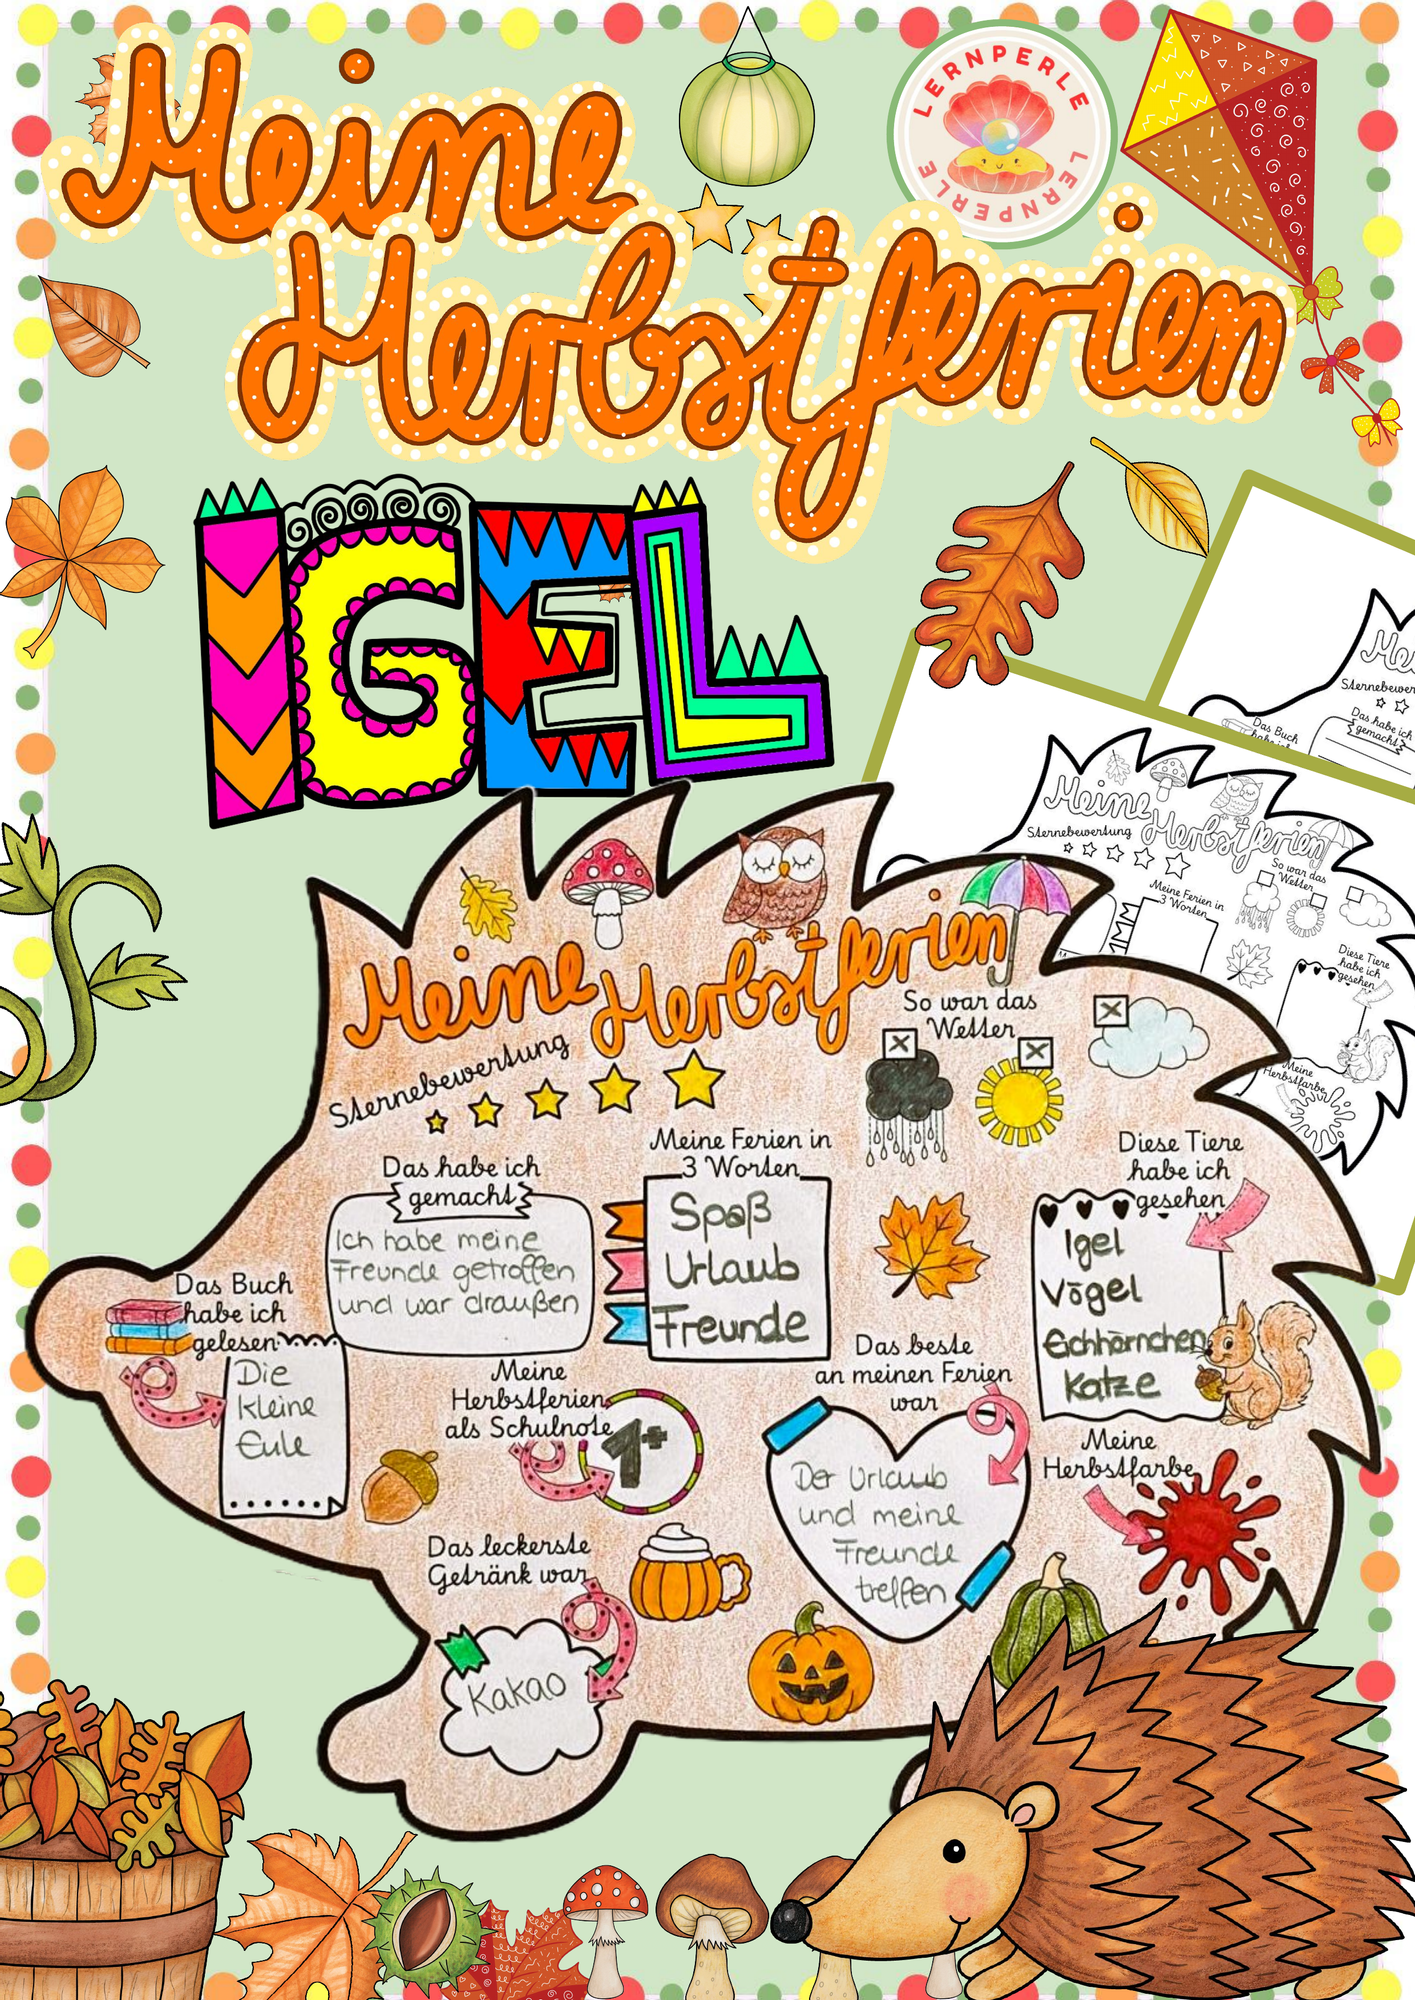 Meine
Herbstferien
LERNPERLE
LERNPERLE
IGEL
Meine Herbstferien
Sternebewertung
So war das
Wetter
Das habe ich
gemacht
Ich habe meine
Freunde getroffen
und war draußen
Meine Ferien in
3 Worten
Spaß
Urlaub
Freunde
Diese Tiere
habe ich
gesehen
Igel
Vögel
Eichhörnchen
Katze
Das Buch
habe ich
gelesen
Die
kleine
Eule
Meine
Herbstferien
als Schulnote
1+
Das beste
an meinen Ferien
war
Der Urlaub
und meine
Freunde
treffen
Meine
Herbstfarbe
Das leckerste
Getränk war
Kakao
Das Buch
Das habe ich
gemacht
Meine
Herbstferien
Sternebewertung
So war das
Wetter
Meine Ferien in
3 Worten
Diese Tiere
habe ich
gesehen
Meine
Herbstfarbe